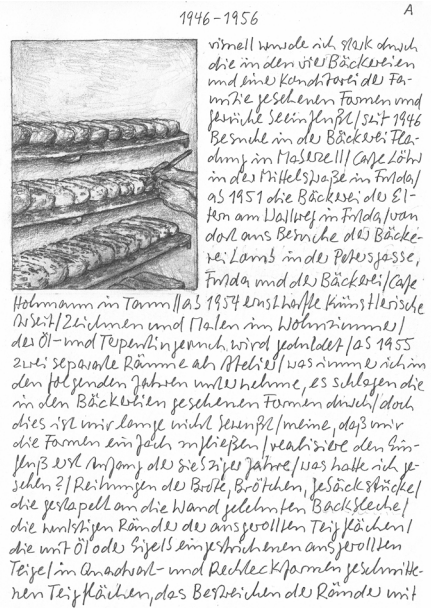 1946-1956
A
visuell wurde ich stark durch
die in den vier Bäckereien
und einer Konditorei der Fa-
milie gesehenen Formen und
Gerüche beeinflußt/seit 1946
Besuche in der Bäckerei
in Maberzell/Cafe Löhr
in der Mittelstraße in Fulda/
ab 1951 die Bäckerei der El-
tern am Wallweg in Fulda/von
dort aus Besuche der Bäcke-
rei Lamb in der Petersgasse,
Fulda und der Bäckerei/Cafe
Hohmann in Tann//ab 1954 ernsthafte künstlerische
Arbeit/Zeichnen und Malen im Wohnzimmer/
der Öl- und Terpentingeruch wird geduldet/ab 1955
zwei separate Räume als Atelier/was immer ich in
den folgenden Jahren unternehme, es schlagen die
in den Bäckereien gesehenen Formen durch/doch
dies ist mir lange nicht bewußt/meine, daß mir
die Formen einfach zufließen/realisiere den Ein-
fluß erst Anfang der siebziger Jahre/was hatte ich ge-
sehen?/Reihungen der Brote, Brötchen, Gebäckstücke/
die gestapelt an die Wand gelehnten Backbleche/
die wulstigen Ränder der ausgerollten Teigflächen/
die mit Öl oder Eigelb eingestrichenen ausgerollten
Teige/in Quadrat- und Rechteckformen geschnitte-
nen Teigflächen, das Bestreichen der Ränder mit